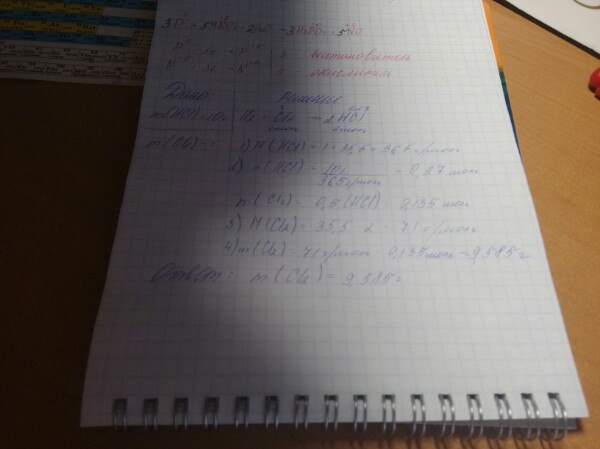 3P⁰ + 5HNO₃ + 2H₂O = 3H₃PO₄ + 5NO
P⁰ - 5e = P⁺⁵ | 3 восстановитель
N⁺⁵ + 3e = N⁺² | 5 окислитель
Дано Решение
m(HCl) = 10г H₂ + Cl₂ → 2HCl
1моль 2моль
m(Cl₂) - ? 1) M(HCl) = 1 + 35,5 = 36,5 г/моль
2) n(HCl) = 10г / 36,5 г/моль = 0,27 моль
n(Cl₂) = 0,5(HCl) = 0,135 моль
3) M(Cl₂) = 35,5 · 2 = 71 г/моль
4) m(Cl₂) = 71 г/моль · 0,135 моль = 9,585 г
Ответ: m(Cl₂) = 9,585 г